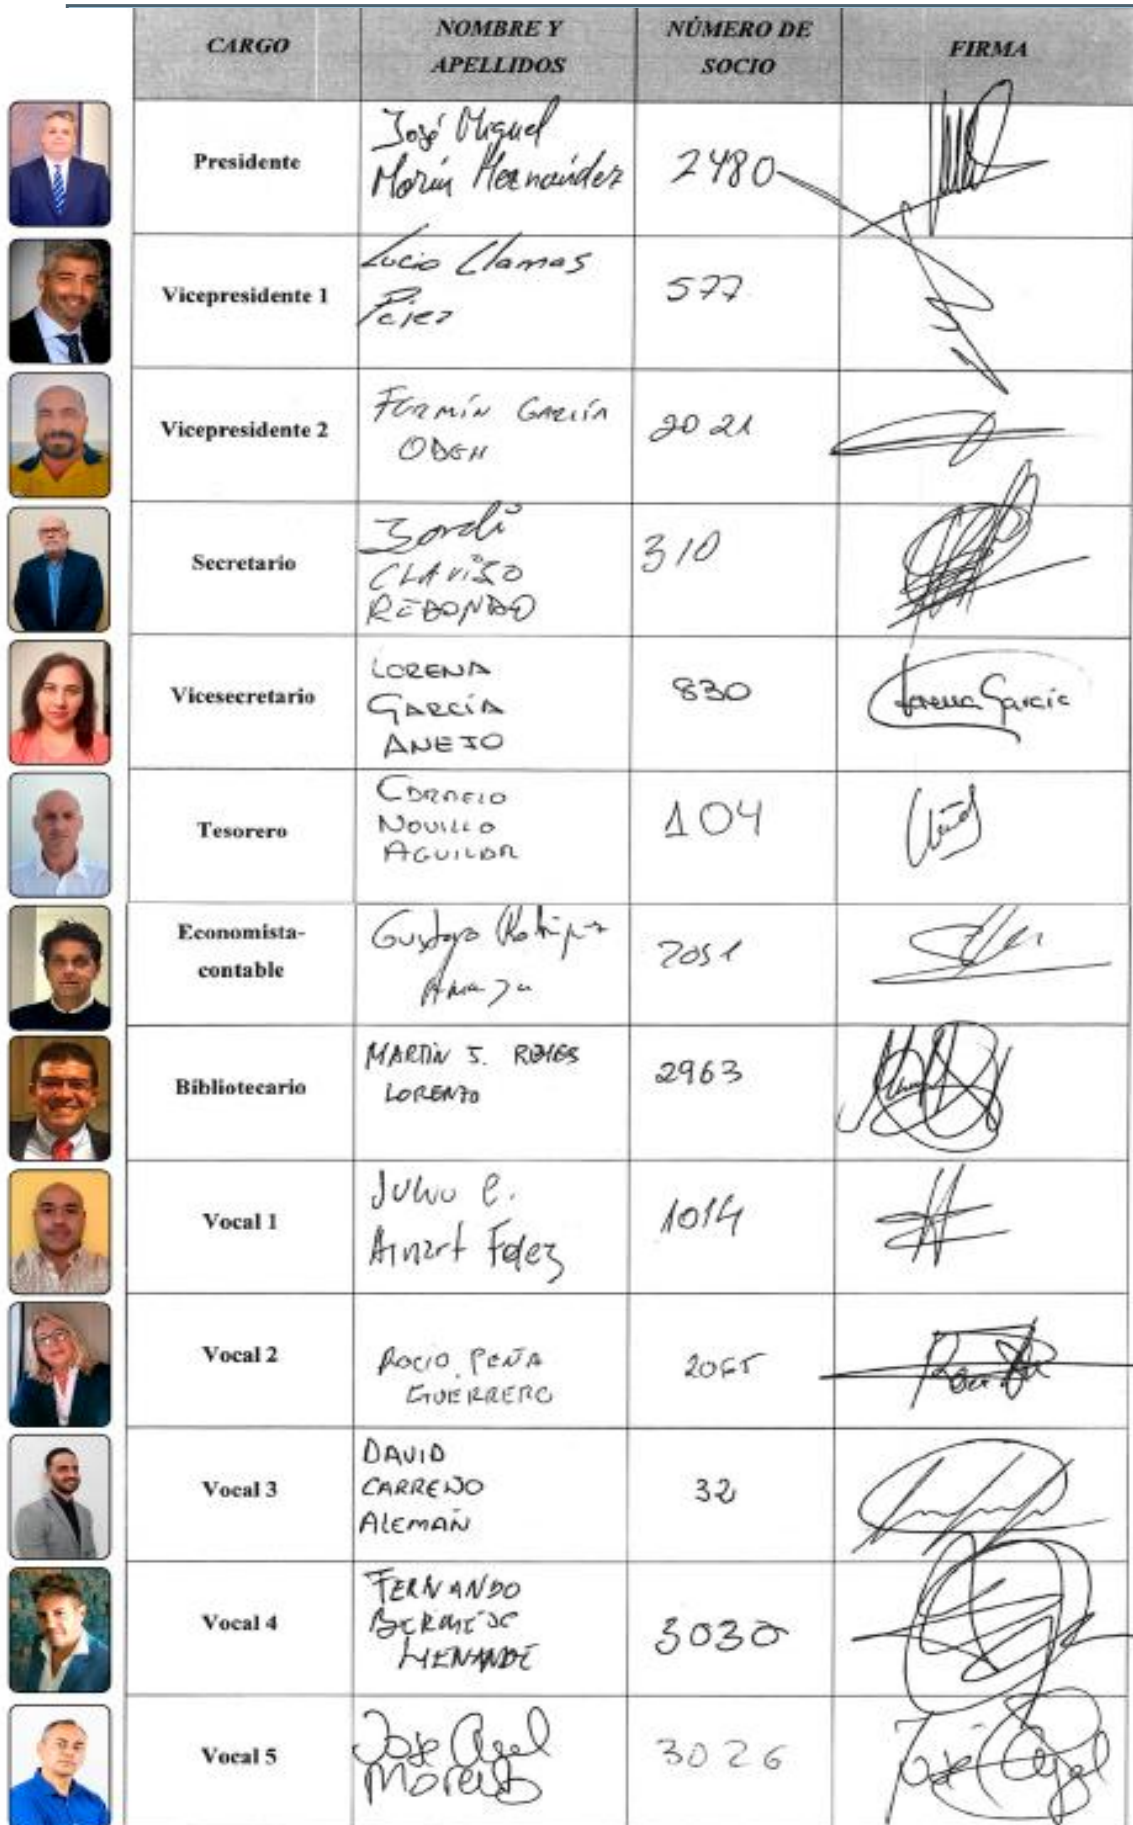 CARGO
NOMBRE Y
APELLIDOS
NÚMERO DE
SOCIO
FIRMA
Presidente
José Miguel
Marín Hernández
2480
Vicepresidente 1
Lucio Llamas
Pérez
577
Vicepresidente 2
FERMÍN GARCÍA
ODEH
2021
Secretario
Jordi
CLAVIJO
REDONDO
310
Vicesecretario
LORENA
GARCÍA
ANEJO
830
Lorena García
Tesorero
CORNELIO
NOVILLO
AGUILAR
104
Economista-
contable
Gustavo
2051
Bibliotecario
MARTÍN J. REYES
LORENZO
2963
Vocal 1
Julio C.
1014
Vocal 2
ROCIO PEÑA
GUERRERO
Vocal 3
DAVID
CARREÑO
ALEMÁN
32
Vocal 4
FERNANDO
3030
Vocal 5
José Angel
Moreno
3026
José Angel